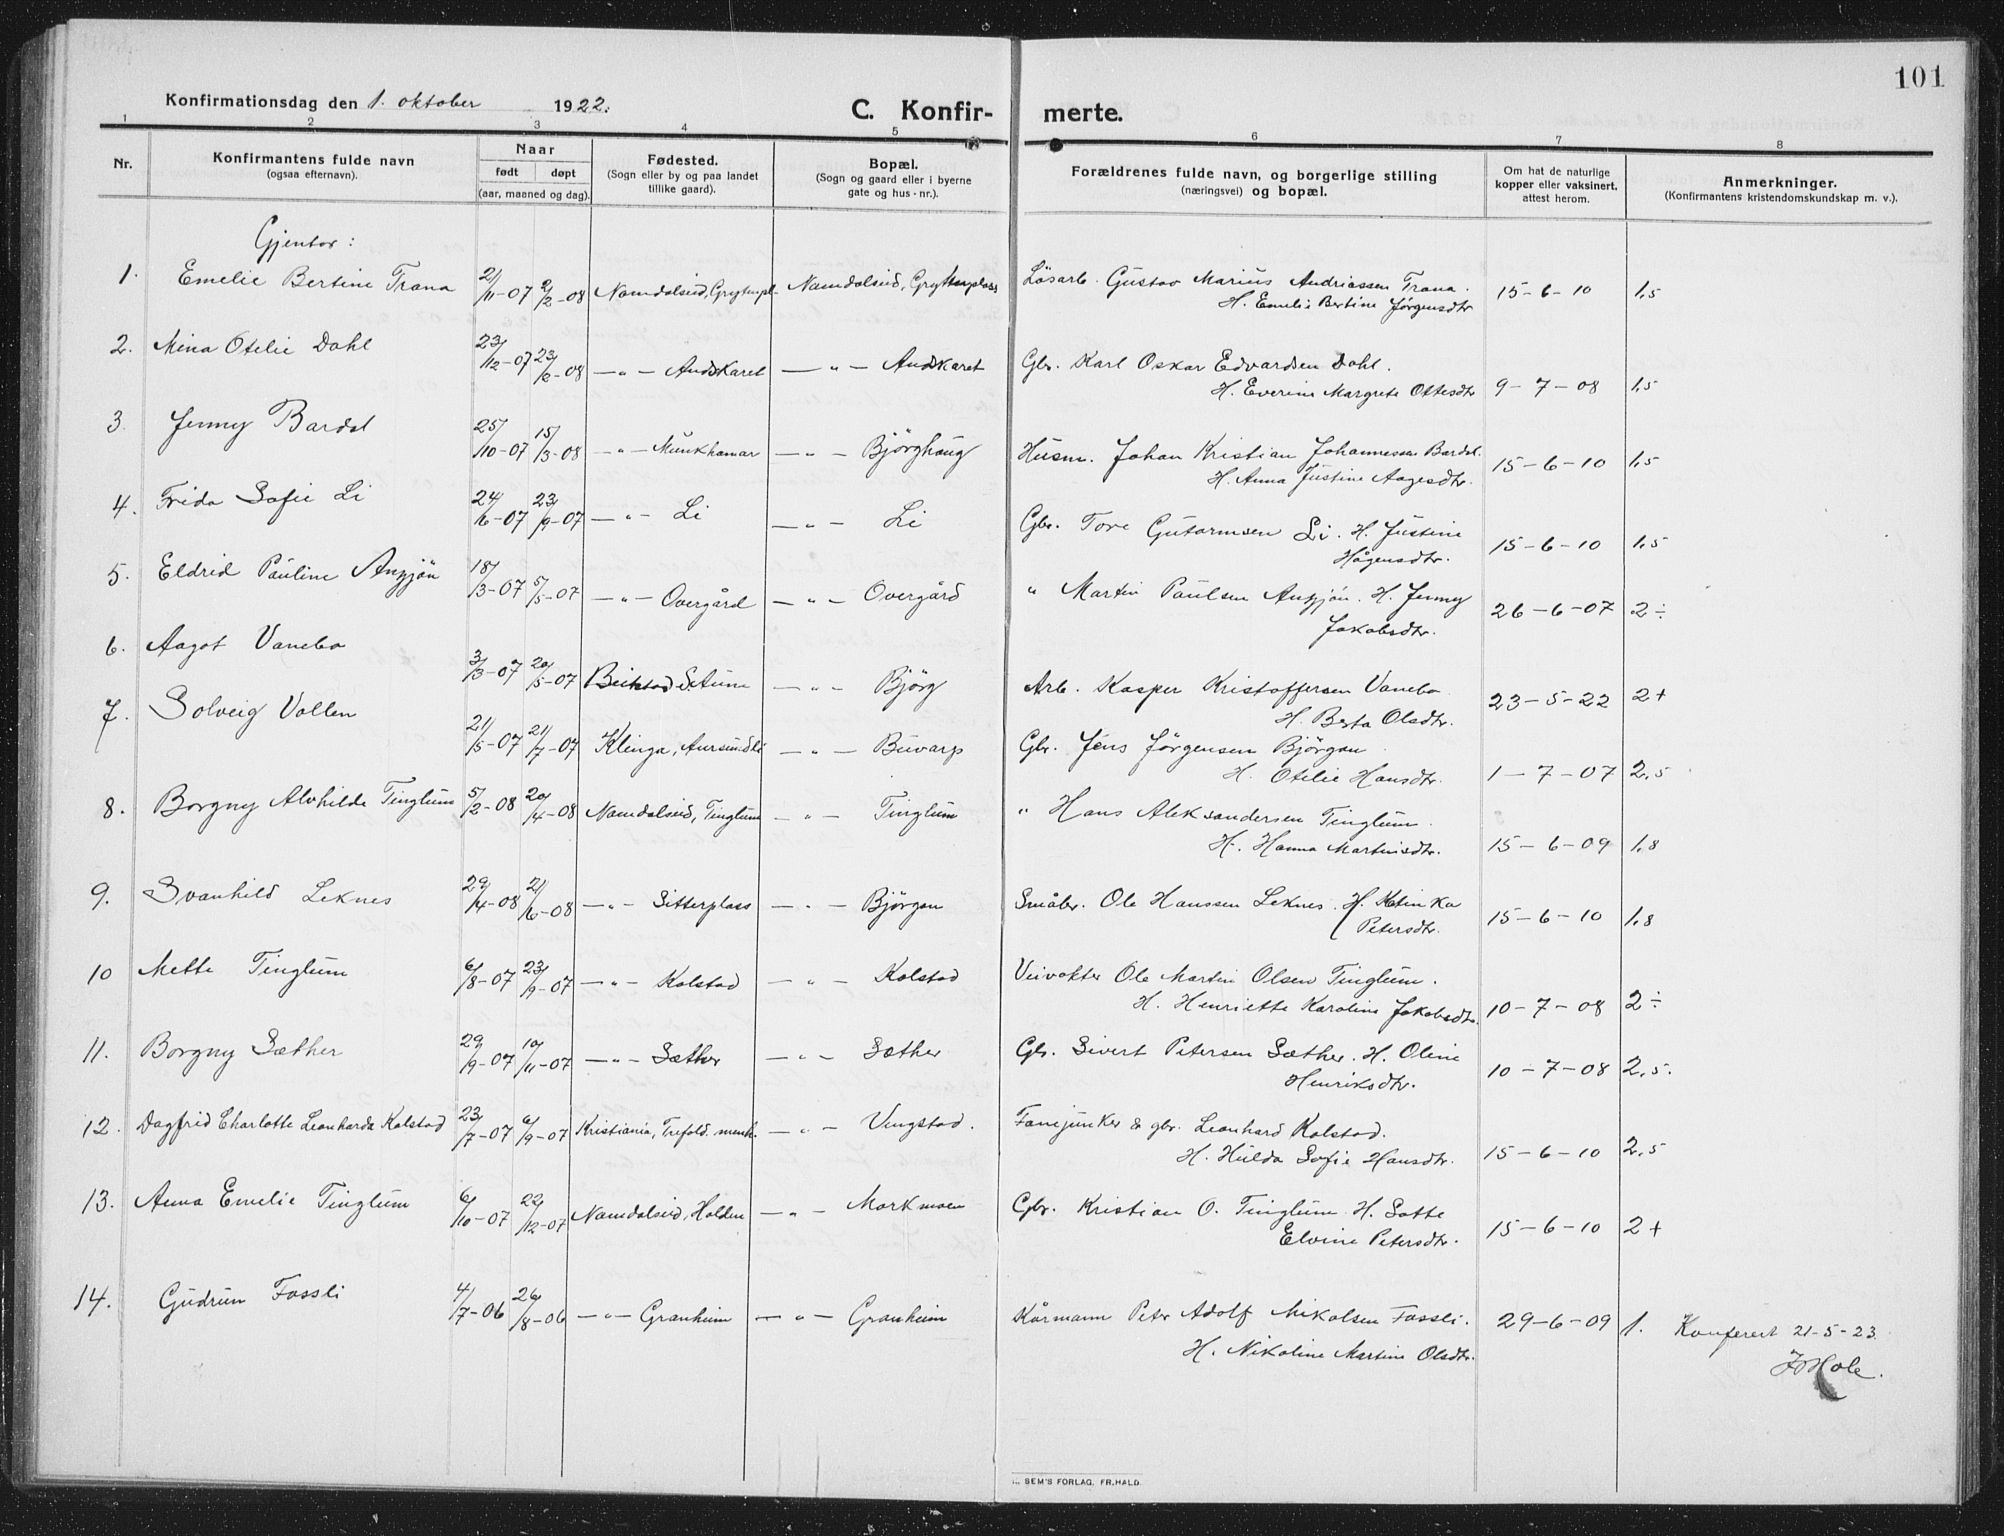 101
Konfirmationsdag den 1. oktober 1922. C. Konfir- merte.
1 2 3 4 5 6 7 8
Nr. Konfirmantens fulde navn (ogsaa efternavn). Naar født døpt (aar, maaned og dag). Fødested. (Sogn eller by og paa landet tillike gaard). Bopæl. (Sogn og gaard eller i byerne gate og hus-nr.). Forældrenes fulde navn, og borgerlige stilling (næringsvei) og bopæl. Om hat de naturlige kopper eller vaksinert, attest herom. Anmerkninger. (Konfirmantens kristendomskundskap m. v.).
Gjentor:
1. Emelie Bertine Trana 2/11-07 2/2-08 Namdalseid, Grytenpl- Namdalseid, Gryttenplass Løsarb. Gustav Marius Andriassen Trana.
H. Emelie Bertine Jørgensdtr 15-6-10 1,5
2. Mina Otelie Dahl 23/12-07 23/2-08 —"— Andskaret —"— Andskaret Gbr. Karl Oskar Edvardsen Dahl.
H. Everine Margrete Ottesdtr 9-7-08 1,5
3. Jenny Bardal 25/10-07 15/3-08 —"— Munkhamar —"— Bjørghaug Husm. Johan Kristian Johannessen Bardal.
H. Anna Justine Aagesdtr. 15-6-10 1,5
4. Frida Sofie Li 24/6-07 23/9-07 —"— Li —"— Li Gbr. Tore Gutormsen Li. H. Justine
Hågensdtr. 15-6-10 1,5
5. Eldrid Pauline Anzjøn 18/3-07 5/5-07 —"— Overgård —"— Overgård " Martin Paulsen Anzjøn. H. Jenny
Jakobsdtr. 26-6-07 2÷
6. Aagot Vanebo 3/3-07 20/5-07 Beitstad, Aune —"— Bjørg Arb. Kasper Kristoffersen Vanebo
H. Berta Olsdtr. 23-5-22 2+
7. Solveig Vollen 21/5-07 21/7-07 Klinga, Aursundli —"— Buvarp Gbr. Jens Jørgensen Bjørgan
H. Otelie Hansdtr. 1-7-07 2,5
8. Borgny Alvhilde Tinglum 5/2-08 20/4-08 Namdalseid, Tinglum —"— Tinglum " Hans Aleksandersen Tinglum.
H. Hanna Martinsdtr. 15-6-09 1,8
9. Svanhild Leknes 29/4-08 21/6-08 —"— Sitterplass —"— Bjørgan Småbr. Ole Hanssen Leknes. H. Katinka
Petersdtr. 15-6-10 1,8
10 Mette Tinglum 6/8-07 23/9-07 —"— Kolstad —"— Kolstad Veivokter Ole Martin Olsen Tinglum.
H. Henriette Karoline Jakobsdtr. 10-7-08 2÷
11. Borgny Sæther 29/9-07 10/11-07 —"— Sæther —"— Sæther Gbr. Sivert Petersen Sæther. H. Oline
Henriksdtr. 10-7-08 2,5.
12. Dagfrid Charlotte Leonharda Kolstad 23/7-07 6/9-07 Kristiania, Trefold. menh. —"— Vengstad. Fanejunker & gbr. Leonhard Kolstad.
H. Hulda Sofie Hansdtr. 15-6-10 2,5
13. Anna Emelie Tinglum 6/10-07 22/12-07 Namdalseid, Holden —"— Morkmoen Gbr. Kristian O. Tinglum. H. Lotte
Elvine Petersdtr. 15-6-10 2+
14. Gudrun Fossli 4/7-06 26/8-06 —"— Granheim —"— Granheim Kårmann Peter Adolf Mikalsen Fossli.
H. Nikoline Martine Olsdtr. 29-6-09 1. Konferert 21-5-23.
Hole.
SEM'S FORLAG, FR.HALD.